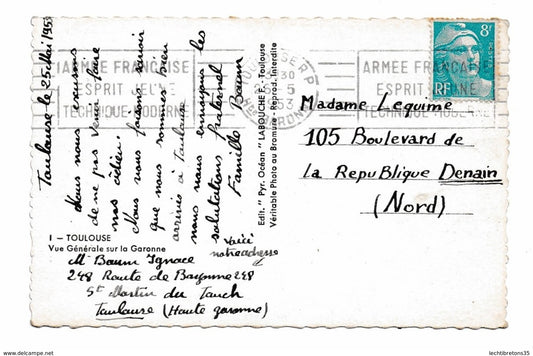 Toulouse le 25 Mai 195
Nous nous excusons
de ne pas venir faire
nos adieu.
Nous vous faisons savoir
que nous sommes bien
arrivés à Toulouse
nous vous envoyons les
salutations fraternel
Famille Baum
1 - TOULOUSE
Vue Générale sur la Garonne
Voici
notre adresse
Mr Baum Ignace
248 Route de Bayonne 248
St Martin du Touch
Toulouse (Haute garonne)
Edit. "Pyr. Océan" LABOUCHE F. - Toulouse
Véritable Photo au Bromure - Reprod. Interdite
ARMÉE FRANÇAISE
ESPRIT JEUNE
TECHNIQUE MODERNE
ARMÉE FRANÇAISE
ESPRIT JEUNE
TECHNIQUE MODERNE
8F
RF
Madame Leguime
105 Boulevard de
la RepuBlique Denain
(Nord)
lechtibretons35
delcampe.net